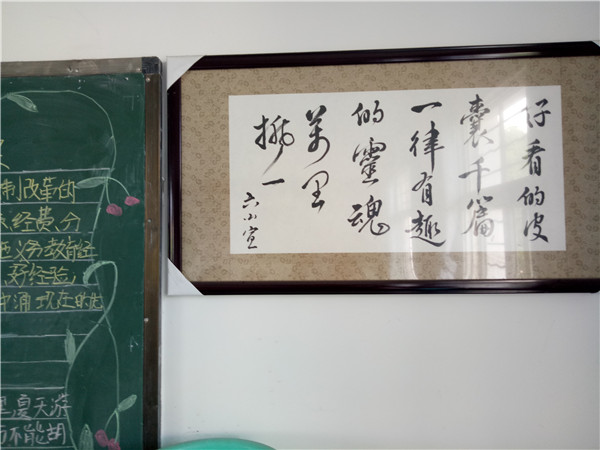 制改革的
经费分
义务教育经
好经验
中涌现在的先
夏天游
而不能胡
好看的皮
囊千篇
一律有趣
的靈魂
萬里
挑一
六小宣